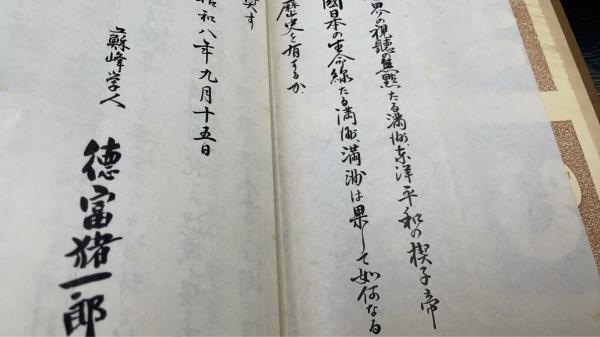 界の視聽の焦點たる滿洲、東洋平和の楔子帝
國日本の生命線たる滿洲、滿洲は果して如何なる
歷史を有するか
昭和八年九月十五日
蘇峰学人
德富猪一郎